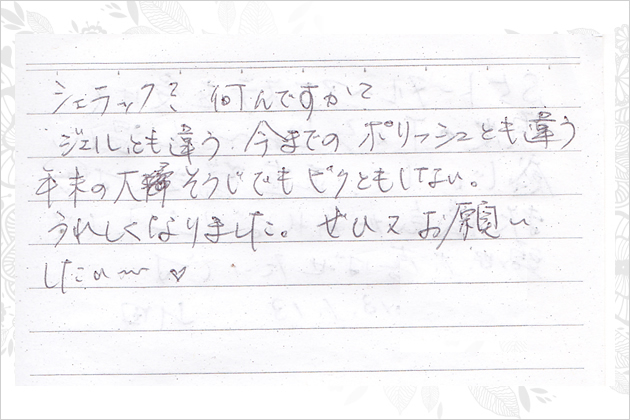 シェラック？ 何んですか？
ジェルとも違う 今までのポリッシュとも違う
年末の大そうじでもビクともしない。
うれしくなりました。ぜひ又お願い
したい〜♡